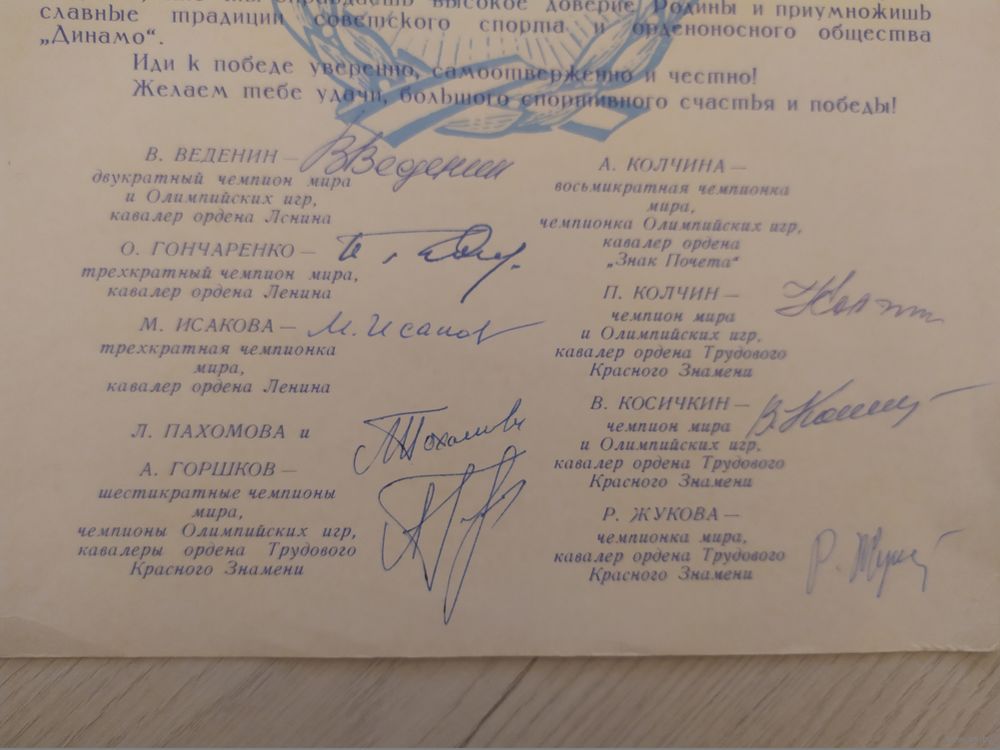 высокое доверие Родины и приумножишь
славные традиции советского спорта и орденоносного общества
„Динамо“.
Иди к победе уверенно, самоотверженно и честно!
Желаем тебе удачи, большого спортивного счастья и победы!
В. ВЕДЕНИН — ВВеденин
двукратный чемпион мира
и Олимпийских игр,
кавалер ордена Ленина
О. ГОНЧАРЕНКО —
трехкратный чемпион мира,
кавалер ордена Ленина
М. ИСАКОВА — М. Исаков
трехкратная чемпионка
мира,
кавалер ордена Ленина
Л. ПАХОМОВА и
А. ГОРШКОВ —
шестикратные чемпионы
мира,
чемпионы Олимпийских игр,
кавалеры ордена Трудового
Красного Знамени
А. КОЛЧИНА —
восьмикратная чемпионка
мира,
чемпионка Олимпийских игр,
кавалер ордена
„Знак Почета“
П. КОЛЧИН —
чемпион мира
и Олимпийских игр,
кавалер ордена Трудового
Красного Знамени
В. КОСИЧКИН —
чемпион мира
и Олимпийских игр,
кавалер ордена Трудового
Красного Знамени
Р. ЖУКОВА —
чемпионка мира,
кавалер ордена Трудового
Красного Знамени